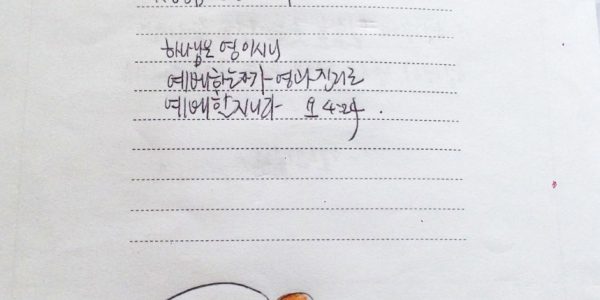 하나님은 영이시니
예배하는자가 영과 진리로
예배할지니라 요 4:24.